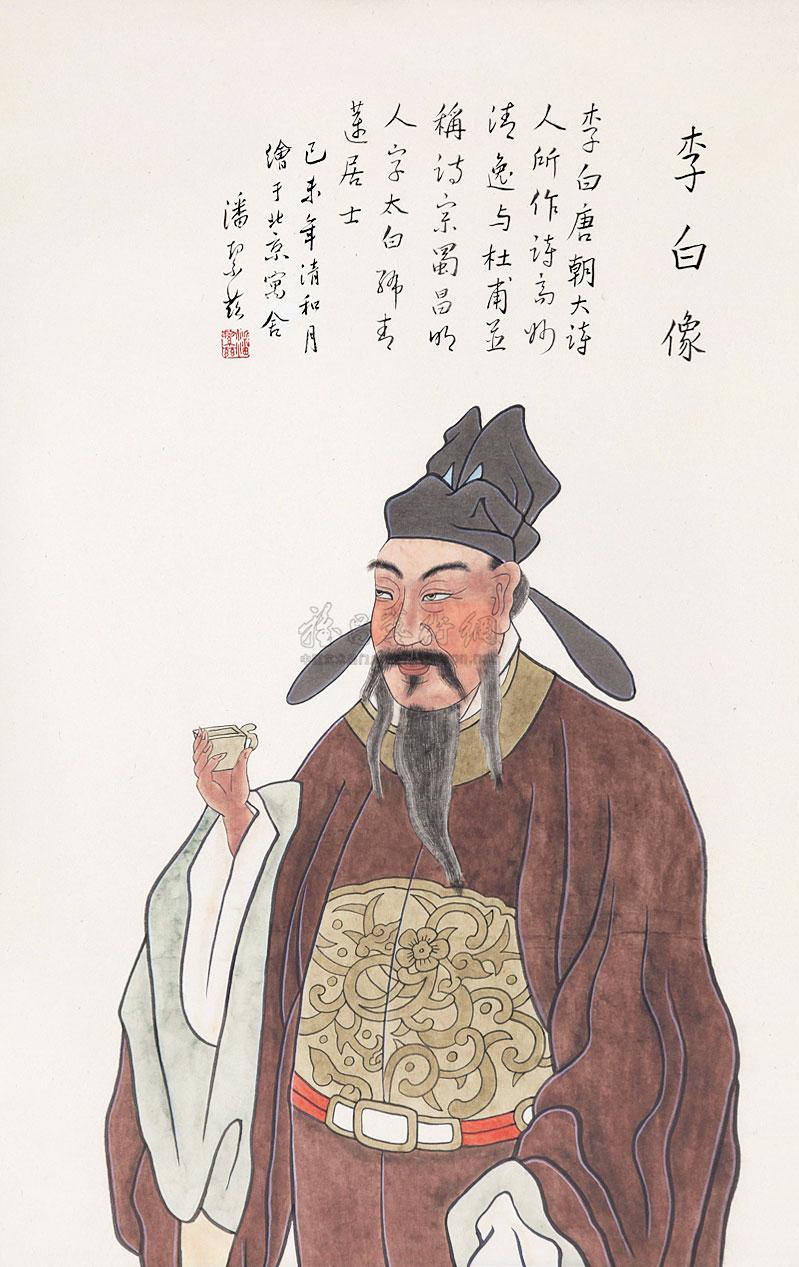 李白像
李白唐朝大诗
人所作诗高妙
清逸与杜甫並
稱诗宗蜀昌明
人字太白号青
莲居士
己未年清和月
繪于北京寓舍
潘絜兹